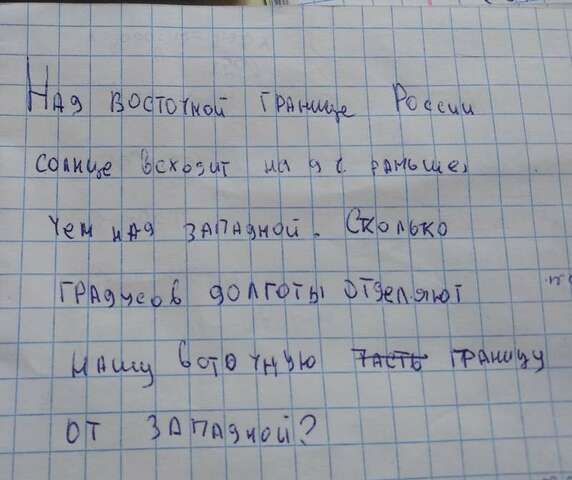 Над восточной границе России
солнце всходит на 9 ч. раньше,
чем над западной. Сколько
градусов долготы отделяют
нашу восточную часть границу
от западной?